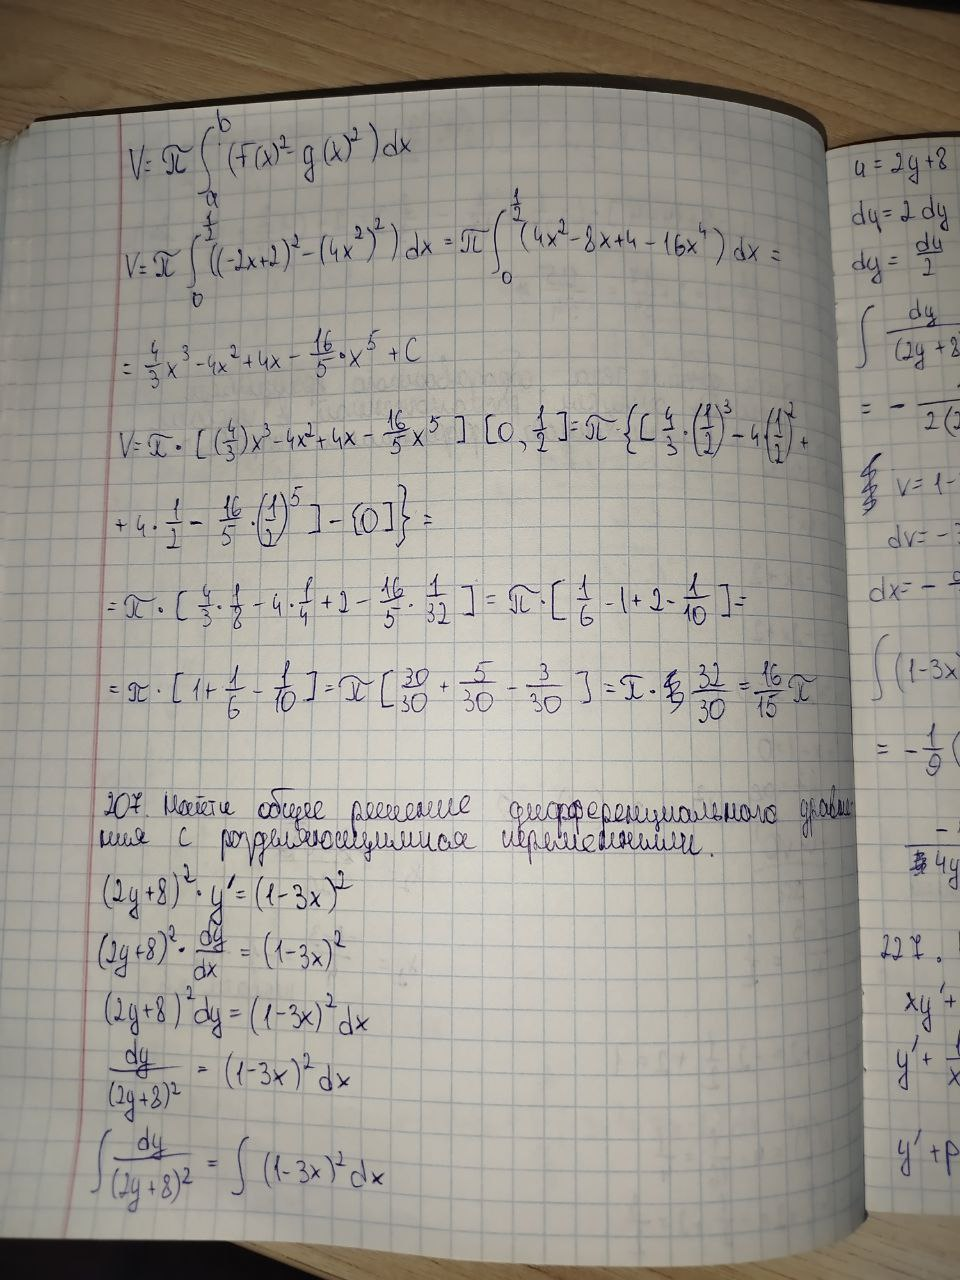 V = π ∫ₐᵇ (f(x)² - g(x)²) dx
V = π ∫₀^{1/2} ((-2x+2)² - (4x²)²) dx = π ∫₀^{1/2} (4x² - 8x + 4 - 16x⁴) dx =
= 4/3 x³ - 4x² + 4x - 16/5 · x⁵ + C
V = π · [(4/3)x³ - 4x² + 4x - 16/5 x⁵] [0, 1/2] = π · {[4/3 · (1/2)³ - 4(1/2)² +
+ 4 · 1/2 - 16/5 · (1/2)⁵] - [0]} =
= π · [4/3 · 1/8 - 4 · 1/4 + 2 - 16/5 · 1/32] = π · [1/6 - 1 + 2 - 1/10] =
= π · [1 + 1/6 - 1/10] = π [30/30 + 5/30 - 3/30] = π · 32/30 = 16/15 π
207. Найти общее решение дифференциального уравне-
ния с разделяющимися переменными.
(2y+8)² · y' = (1-3x)²
(2y+8)² · dy/dx = (1-3x)²
(2y+8)² dy = (1-3x)² dx
dy/(2y+8)² = (1-3x)² dx
∫ dy/(2y+8)² = ∫ (1-3x)² dx
u = 2y+8
du = 2 dy
dy = du/2
∫ dy/(2y+8
= - /2(2
V = 1-
dv = -3
dx = -
∫ (1-3x)
= -1/9 (
-
4y
227.
xy' +
y' + 1/x
y' + p